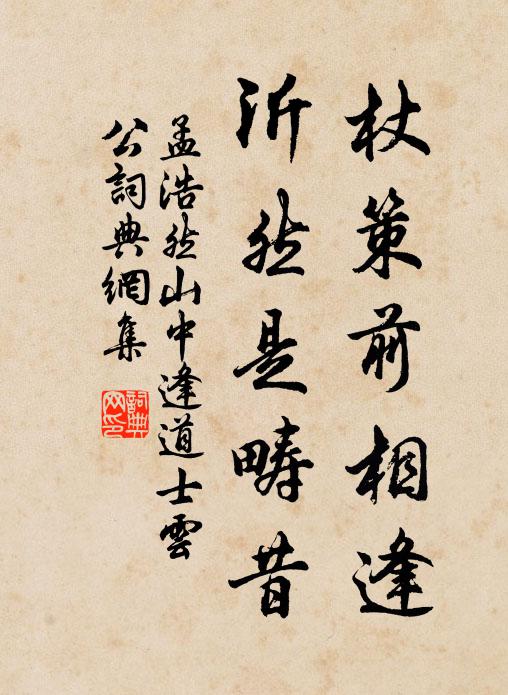 杖策前相逢
沂然是疇昔
孟浩然山中逢道士雲
公詞典網集
詞典
网印